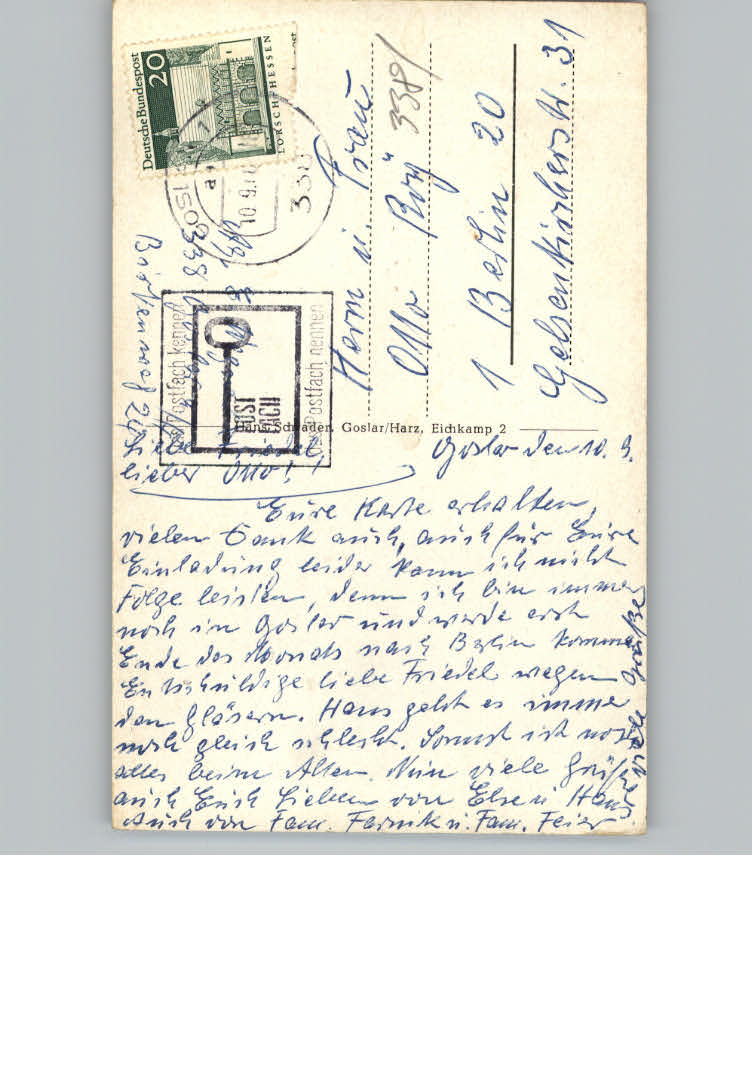 Deutsche Bundespost
20
LORSCH/HESSEN
338
10.9.
Postfach kennen
POST
FACH
Postfach nennen
338
Birkenweg
Herrn u. Frau
Otto
338/
1 Berlin 20
Gelsenkircherstr. 31
Hans Schrader, Goslar/Harz, Eichkamp 2
Goslar den 10. 9.
Liebe Friedel,
lieber Otto!
Eure Karte erhalten,
vielen Dank auch, auch für Eure
Einladung leider kann ich nicht
Folge leisten, denn ich bin immer
noch in Goslar und werde erst
Ende des Monats nach Berlin kommen
Entschuldige liebe Friedel wegen
den Gläsern. Hans geht es immer
noch gleich schlecht. Sonst ist noch
alles beim Alten. Nun viele Grüße
auch Euch Lieben von Else u. Hans
Auch von Fam. u. Fam. Feier
viele Grüße